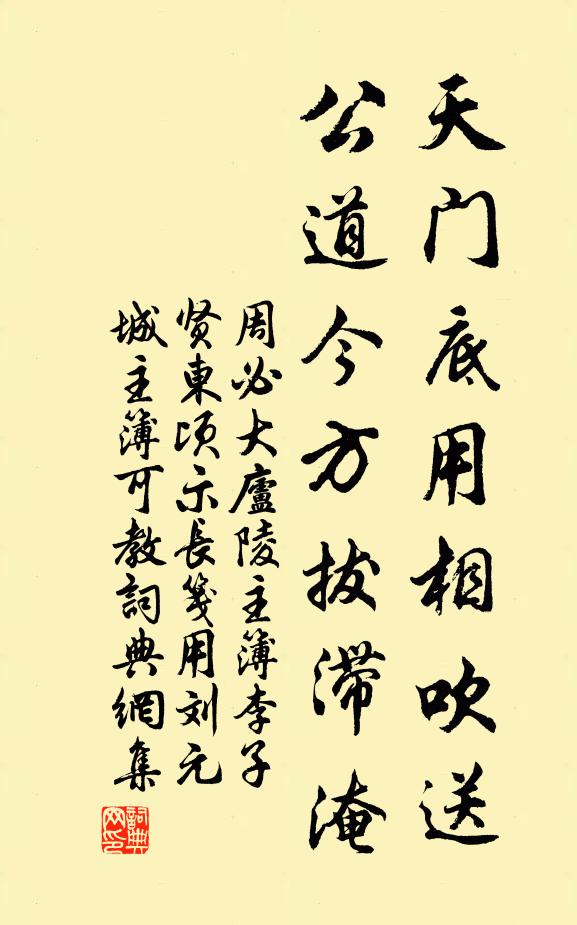 天门底用相吹送
公道今方拔滞淹
周必大廬陵主簿李子
贤東项示長箋用刘元
城主簿可教詞典網集
詞典网印